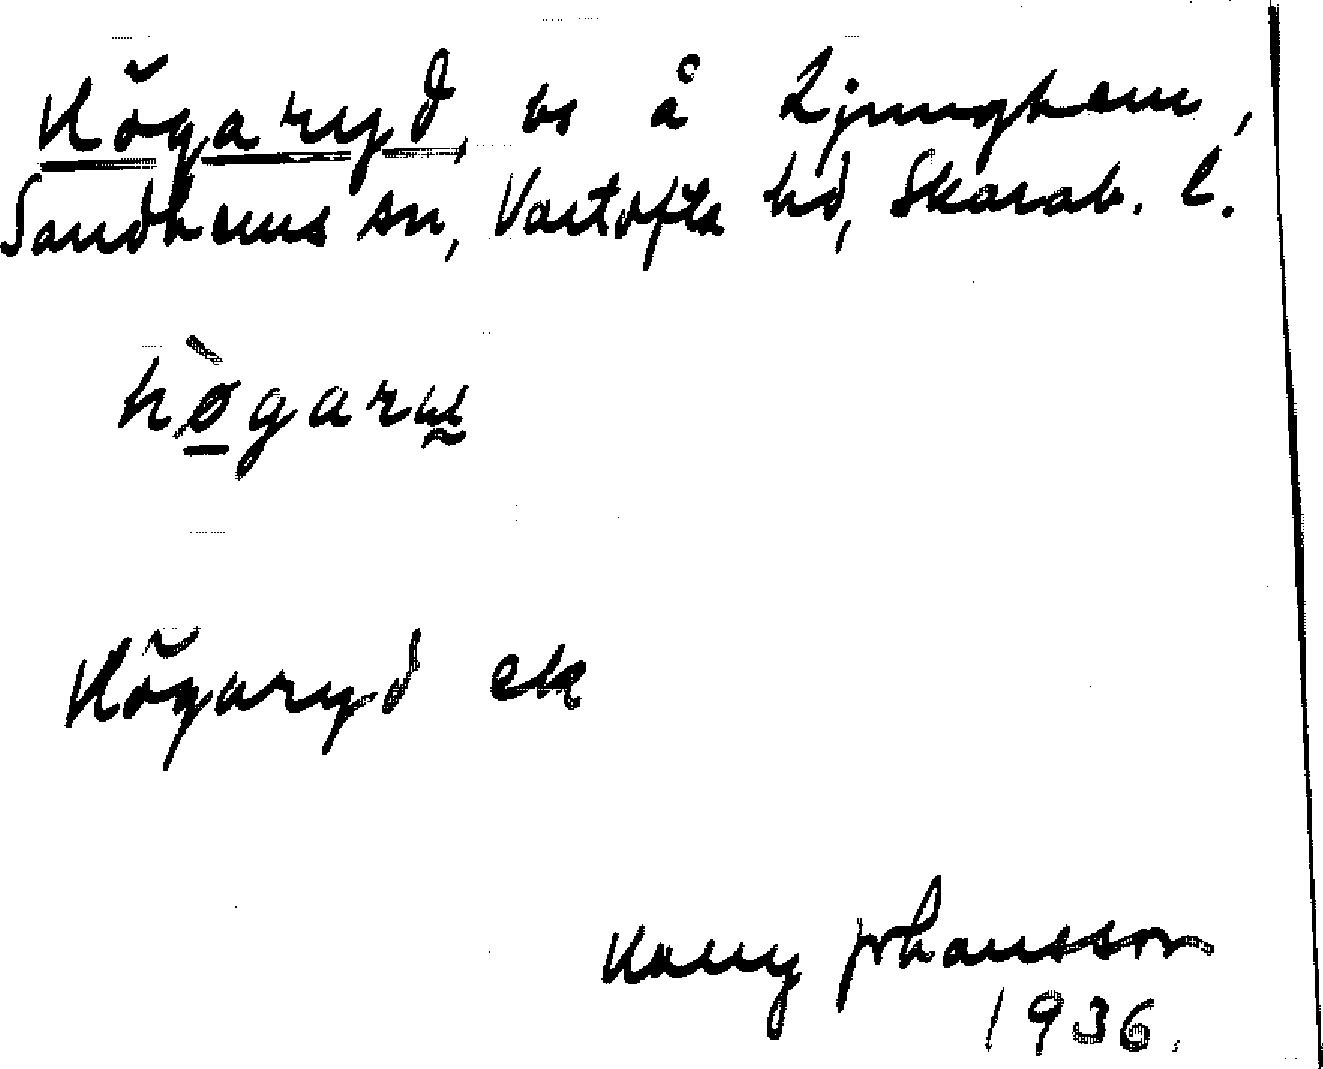 Högaryd, bs å Ljunghem,
Sandhems sn, Vartofta hd, Skarab. l.
hø̀garṵ
Högaryd ek
Johansson
1936.